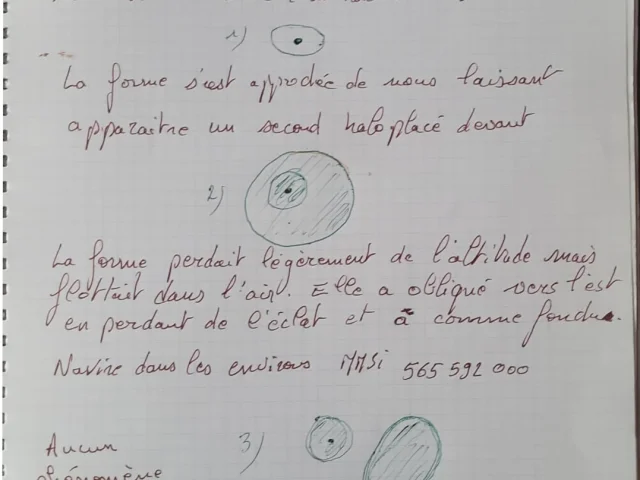 1)
La forme s'est approchée de nous laissant
apparaitre un second halo placé devant
2)
La forme perdait légèrement de l'altitude mais
flottait dans l'air. Elle a obliqué vers l'est
en perdant de l'éclat et à comme fondue.
Navire dans les environs MMSi 565 592 000
3)
Aucun
phénomène